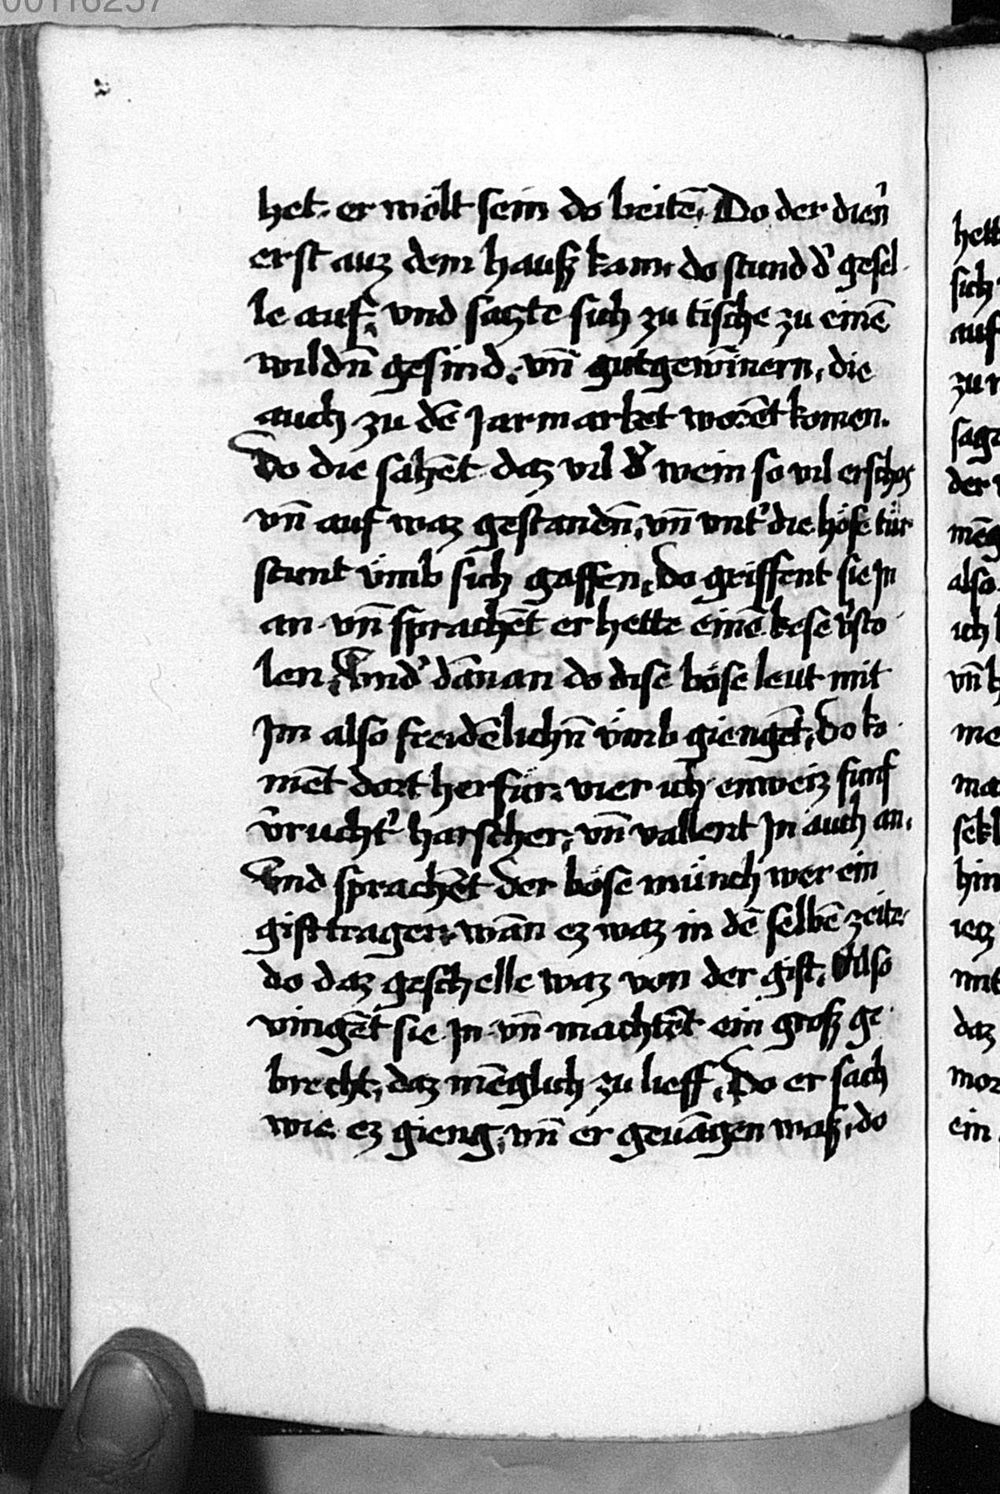 00116257
het. er wölt sein do beitē. Do der dien̄
erst auz dem hausz kam. do stund d' gesel
le auf. vnd sagzte sich zu tische zu einē
wildn̄ gesind. vn̄ gutgewīnern. die
auch zu dē Jarmarket worēt komen.
Do die sahēt daz vil d' wein so vil erschos
vn̄ auf waz gestandēn, vn̄ vnt' die höfe tür
stunt vmb sich gaffen. do griffent sie Jn
an. vn̄ sprachēt er hette einē kese v'sto
len. Vnd' dānan do dise böse leut mit
Jm also freidēlichn̄ vmb giengēt, Do ko
mēt dort her für vier ich enweiz funf
v'rucht' harscher, vn̄ vallent Jn auch an.
Vnd sprachēt der böse münch wer ein
gifttrager. wān ez waz in dē selbē zeite
do daz geschelle waz von der gift. Also
vingēt sie Jn vn̄ machtēt ein grosz ge
brecht, daz mēglich zu lieff. Do er sach
wie ez gieng, vn̄ er geuāgen wasz, do
hett
sich
auf
zu
sag
der
mēg
also
ich
vn̄
me
ma
hin
mit
daz
mor
ein